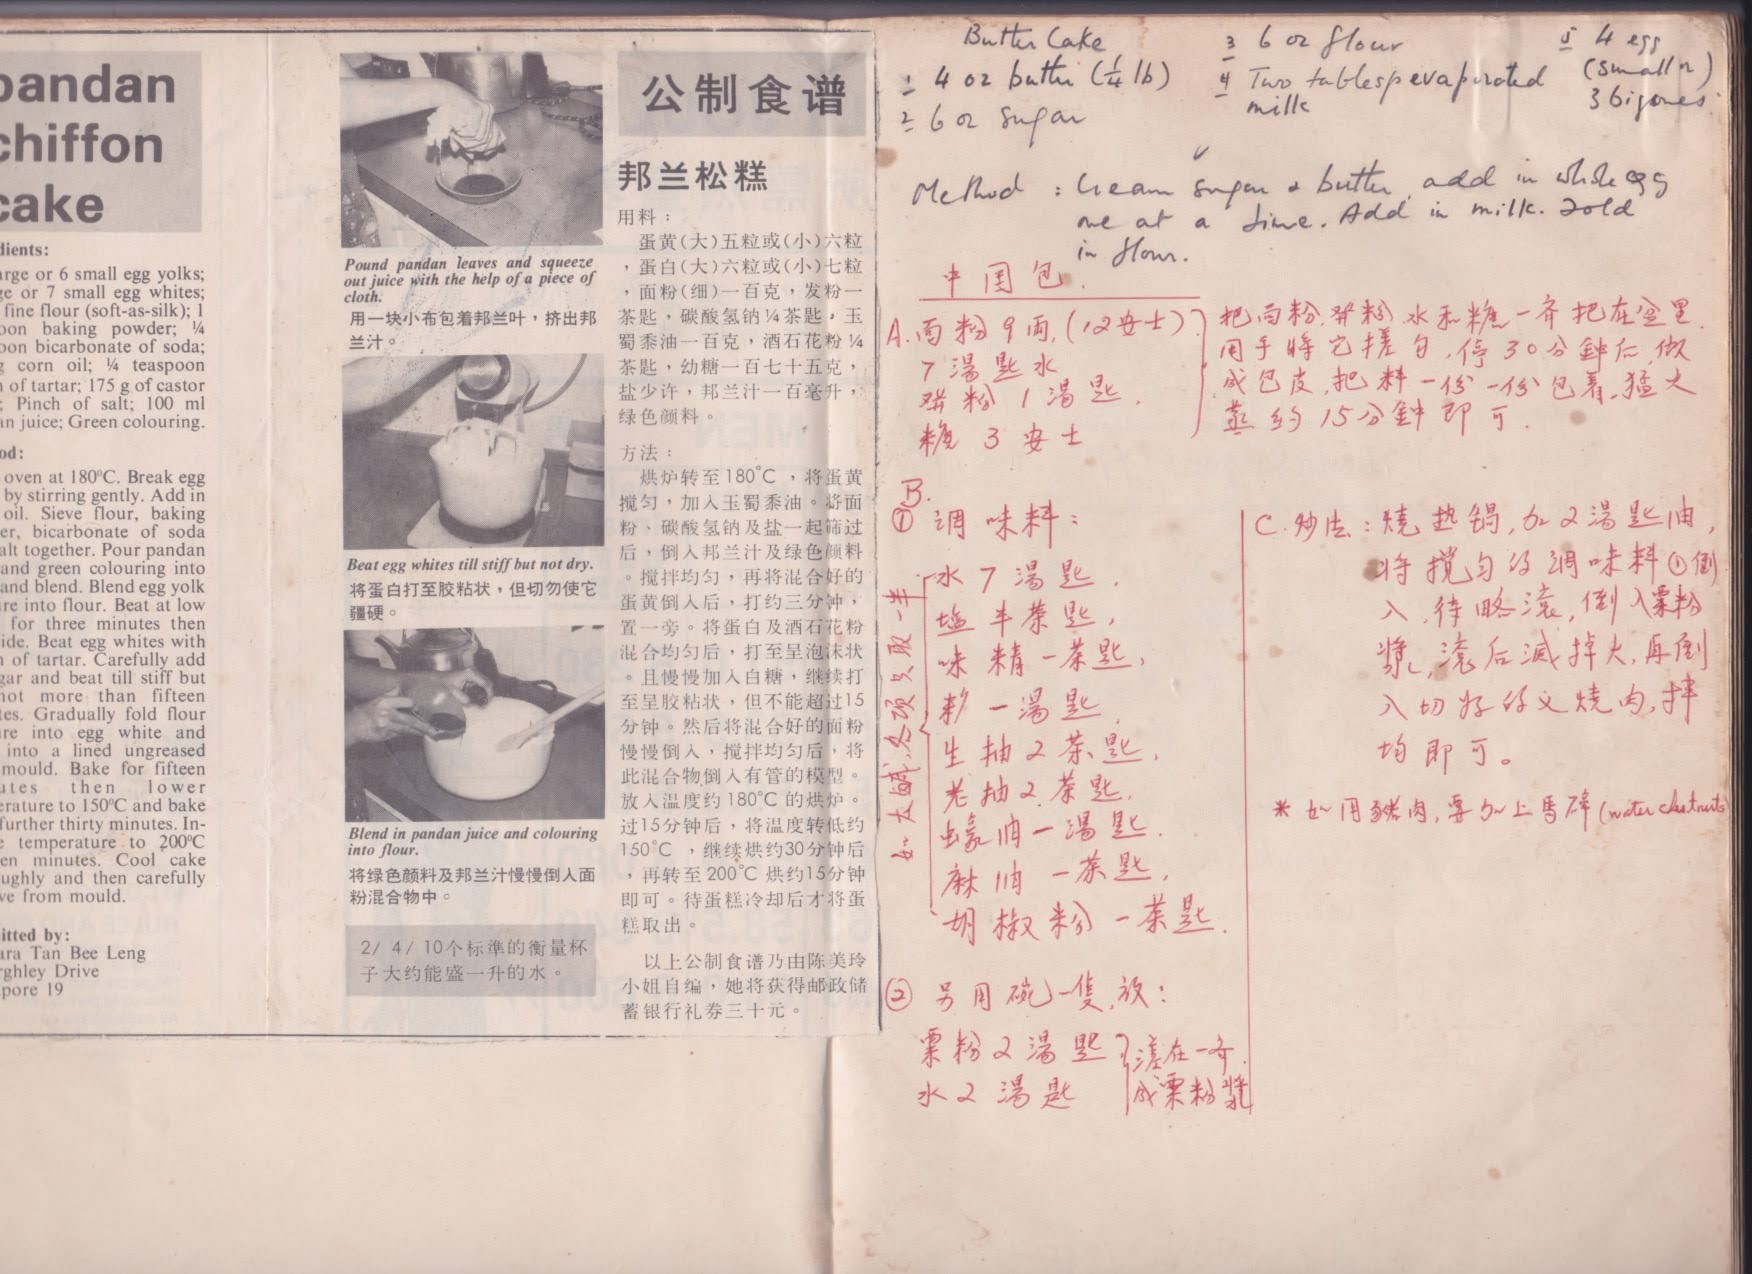 pandan
chiffon
cake
dients:
arge or 6 small egg yolks;
ge or 7 small egg whites;
fine flour (soft-as-silk); 1
oon baking powder; ¼
oon bicarbonate of soda;
g corn oil; ¼ teaspoon
n of tartar; 175 g of castor
; Pinch of salt; 100 ml
an juice; Green colouring.
od:
oven at 180°C. Break egg
by stirring gently. Add in
oil. Sieve flour, baking
er, bicarbonate of soda
alt together. Pour pandan
and green colouring into
and blend. Blend egg yolk
re into flour. Beat at low
for three minutes then
ide. Beat egg whites with
n of tartar. Carefully add
gar and beat till stiff but
not more than fifteen
tes. Gradually fold flour
re into egg white and
into a lined ungreased
mould. Bake for fifteen
utes then lower
erature to 150°C and bake
further thirty minutes. In-
e temperature to 200°C
en minutes. Cool cake
ughly and then carefully
ve from mould.
itted by:
ara Tan Bee Leng
rghley Drive
pore 19
Pound pandan leaves and squeeze
out juice with the help of a piece of
cloth.
用一块小布包着邦兰叶，挤出邦
兰汁。
Beat egg whites till stiff but not dry.
将蛋白打至胶粘状，但切勿使它
疆硬。
Blend in pandan juice and colouring
into flour.
将绿色颜料及邦兰汁慢慢倒人面
粉混合物中。
2/ 4/ 10个标準的衡量杯
子大约能盛一升的水。
公制食谱
邦兰松糕
用料：
蛋黄(大)五粒或(小)六粒
，蛋白(大)六粒或(小)七粒
，面粉(细)一百克，发粉一
茶匙，碳酸氢钠¼茶匙，玉
蜀黍油一百克，酒石花粉¼
茶匙，幼糖一百七十五克，
盐少许，邦兰汁一百毫升，
绿色颜料。
方法：
烘炉转至180°C，将蛋黄
搅匀，加入玉蜀黍油。将面
粉、碳酸氢钠及盐一起筛过
后，倒入邦兰汁及绿色颜料
。搅拌均匀，再将混合好的
蛋黄倒入后，打约三分钟，
置一旁。将蛋白及酒石花粉
混合均匀后，打至呈泡沫状
。且慢慢加入白糖，继续打
至呈胶粘状，但不能超过15
分钟。然后将混合好的面粉
慢慢倒入，搅拌均匀后，将
此混合物倒入有管的模型。
放入温度约180°C的烘炉。
过15分钟后，将温度转低约
150°C，继续烘约30分钟后
，再转至200°C烘约15分钟
即可。待蛋糕冷却后才将蛋
糕取出。
以上公制食谱乃由陈美玲
小姐自编，她将获得邮政储
蓄银行礼券三十元。
Butter Cake
1 4 oz butter (¼ lb)
2 6 oz sugar
3 6 oz flour
4 Two tablesp evaporated
milk
5 4 egg
(smaller)
3 big ones
Method : Cream sugar & butter, add in whole egg
one at a time. Add in milk. Fold
in flour.
中国包
A. 面粉9両,(12安士)
7湯匙水
發粉1湯匙,
糖3安士
把面粉,發粉,水和糖一齐把在盆里
用手将它搓匀,停30分鐘后,做
成包皮,把料一份一份包着,猛火
蒸约15分鐘即可.
B.
① 调味料:
水7湯匙,
塩半茶匙,
味精一茶匙,
糖一湯匙,
生抽2茶匙,
老抽2茶匙,
蠔油一湯匙.
麻油一茶匙,
胡椒粉一茶匙.
如太咸,各项只取一半
② 另用碗一隻,放:
粟粉2湯匙
水2湯匙
溶在一齐
成粟粉漿
C. 炒法: 燒热锅,加2湯匙油,
将搅匀的调味料①倒
入,待略滚,倒入粟粉
漿,滚后减掉火,再倒
入切好的义燒肉,拌
均即可。
* 如用豬肉,要加上馬碲(water chestnuts)